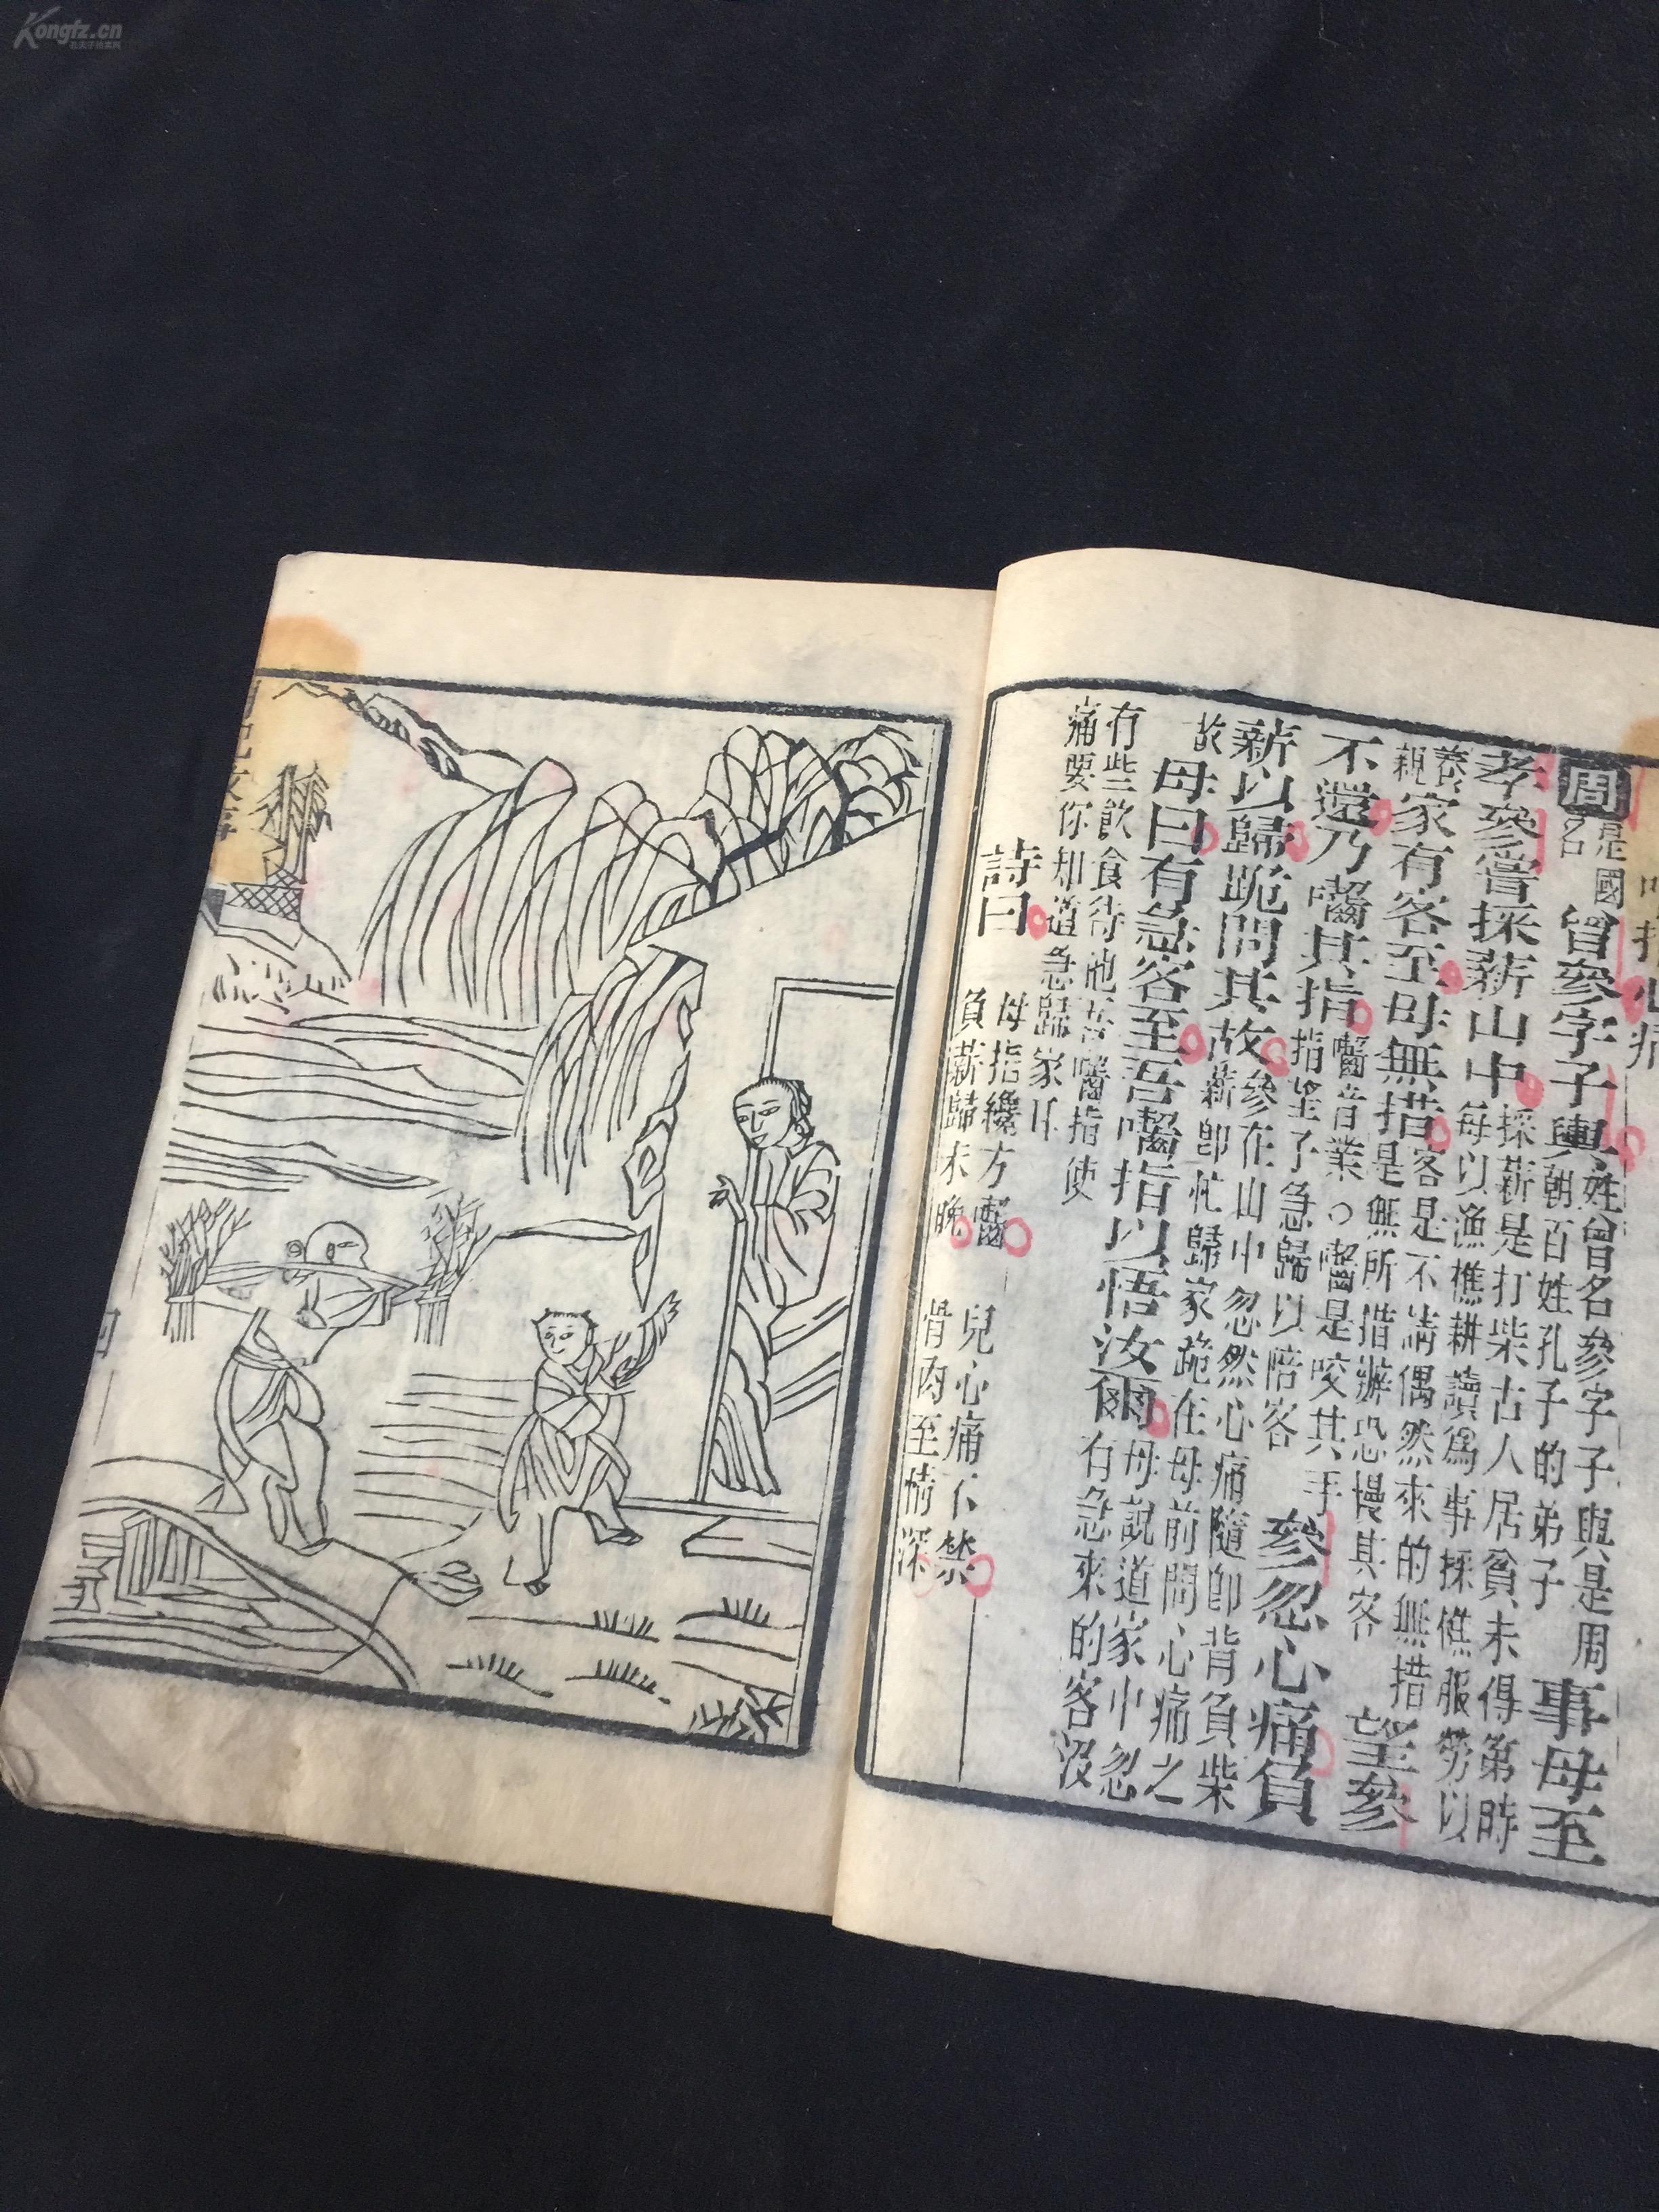 指心痛
周是國名曾參字子輿姓曾名參字子與是周朝百姓孔子的弟子事母至
孝參嘗採薪山中採薪是打柴古人居貧未得第時每以漁樵耕讀爲事採樵服勞以
養親家有客至母無措客是不請偶然來的無措是無所措辦恐慢其客望參
不還乃嚙其指嚙音業○嚙是咬其手指望子急歸以陪客參忽心痛負
薪以歸跪問其故參在山中忽然心痛隨卽背負柴薪卽忙歸家跪在母前問心痛之
故母曰有急客至吾嚙指以悟汝爾母說道家中忽有急來的客沒
有些飲食待他吾嚙指使痛要你知道急歸家耳
詩曰
母指纔方嚙 兒心痛不禁
負薪歸未晚 骨肉至情深
日記故事
四
Kongfz.cn